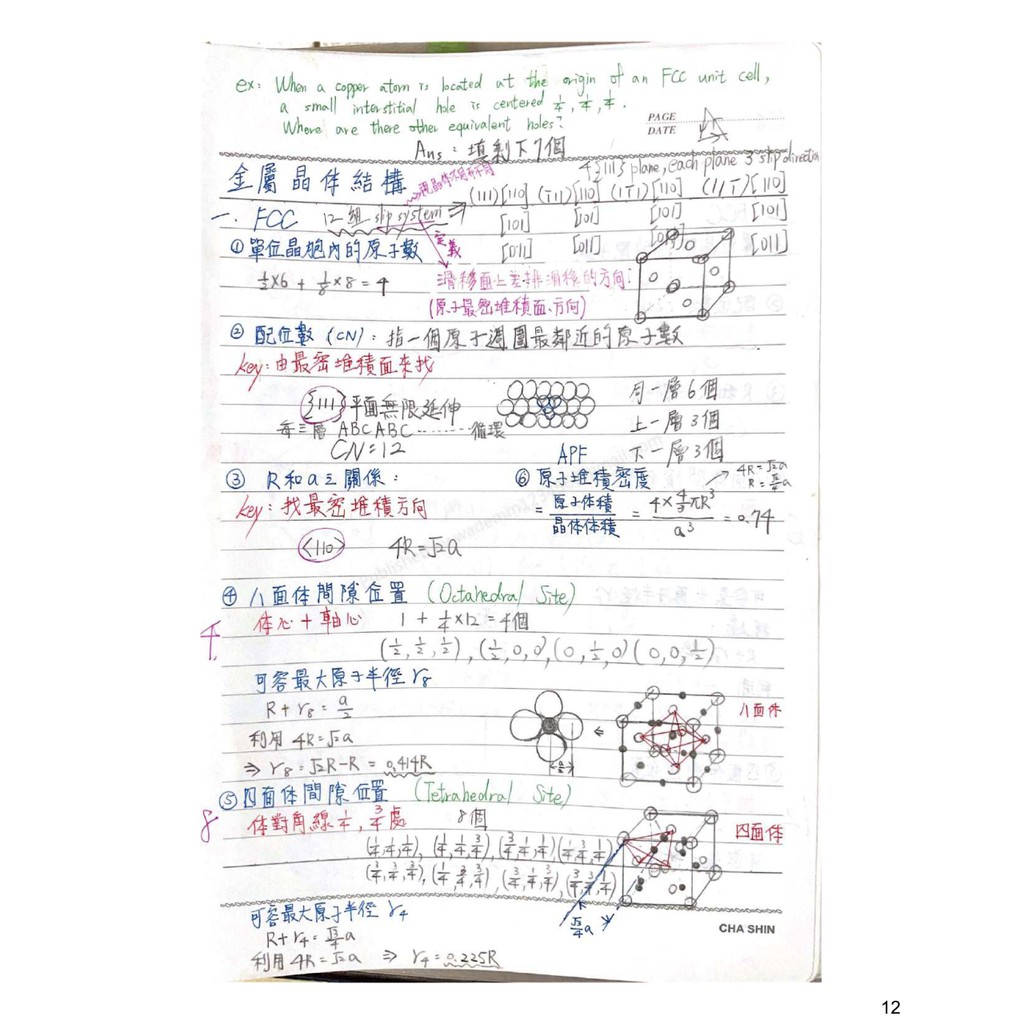 ex: When a copper atom is located at the origin of an FCC unit cell,
a small interstitial hole is centered ¼, ¼, ¼.
Where are there other equivalent holes?
PAGE
DATE
Ans: 填剩下7個
4 {111} plane, each plane 3 slip direction
金屬晶体結構
(111)[110] (1̅11)[110] (11̅1)[110] (111̅)[110]
一. FCC 12組 slip system ⇒ [101] [101] [101] [101]
[011] [011] [011]
定義
①單位晶胞內的原子數
½×6 + ⅛×8 = 4
滑移面上差排滑移的方向:
(原子最密堆積面、方向)
② 配位數 (CN): 指一個原子週圍最鄰近的原子數
key: 由最密堆積面來找
{111} 平面無限延伸
每三層 ABCABC........循環
CN=12
同一層6個
上一層3個
下一層3個
③ R和a之關係:
key: 找最密堆積方向
<110> 4R=√2a
APF
⑥ 原子堆積密度
4R=√2a
R=√2/4a
= 原子体積/晶体体積 = 4×4/3πR³/a³ = 0.74
④ 八面体間隙位置 (Octahedral Site)
4
体心+軸心 1 + ¼×12 = 4個
(½,½,½), (½,0,0) (0,½,0) (0,0,½)
可容最大原子半徑 r8
R + r8 = a/2
利用 4R=√2a
⇒ r8 = √2R-R = 0.414R
八面体
a/2
⑤四面体間隙位置 (Tetrahedral Site)
8
体對角線¼, ¾處 8個
(¼,¼,¼), (¼,¼,¾), (¾,¼,¼) (¼,¾,¼)
(¾,¾,¾), (¼,¾,¾), (¾,¼,¾), (¾,¾,¼)
四面体
√3/4a
可容最大原子半徑 r4
R+r4 = √3/4a
利用 4R=√2a ⇒ r4 = 0.225R
CHA SHIN
12